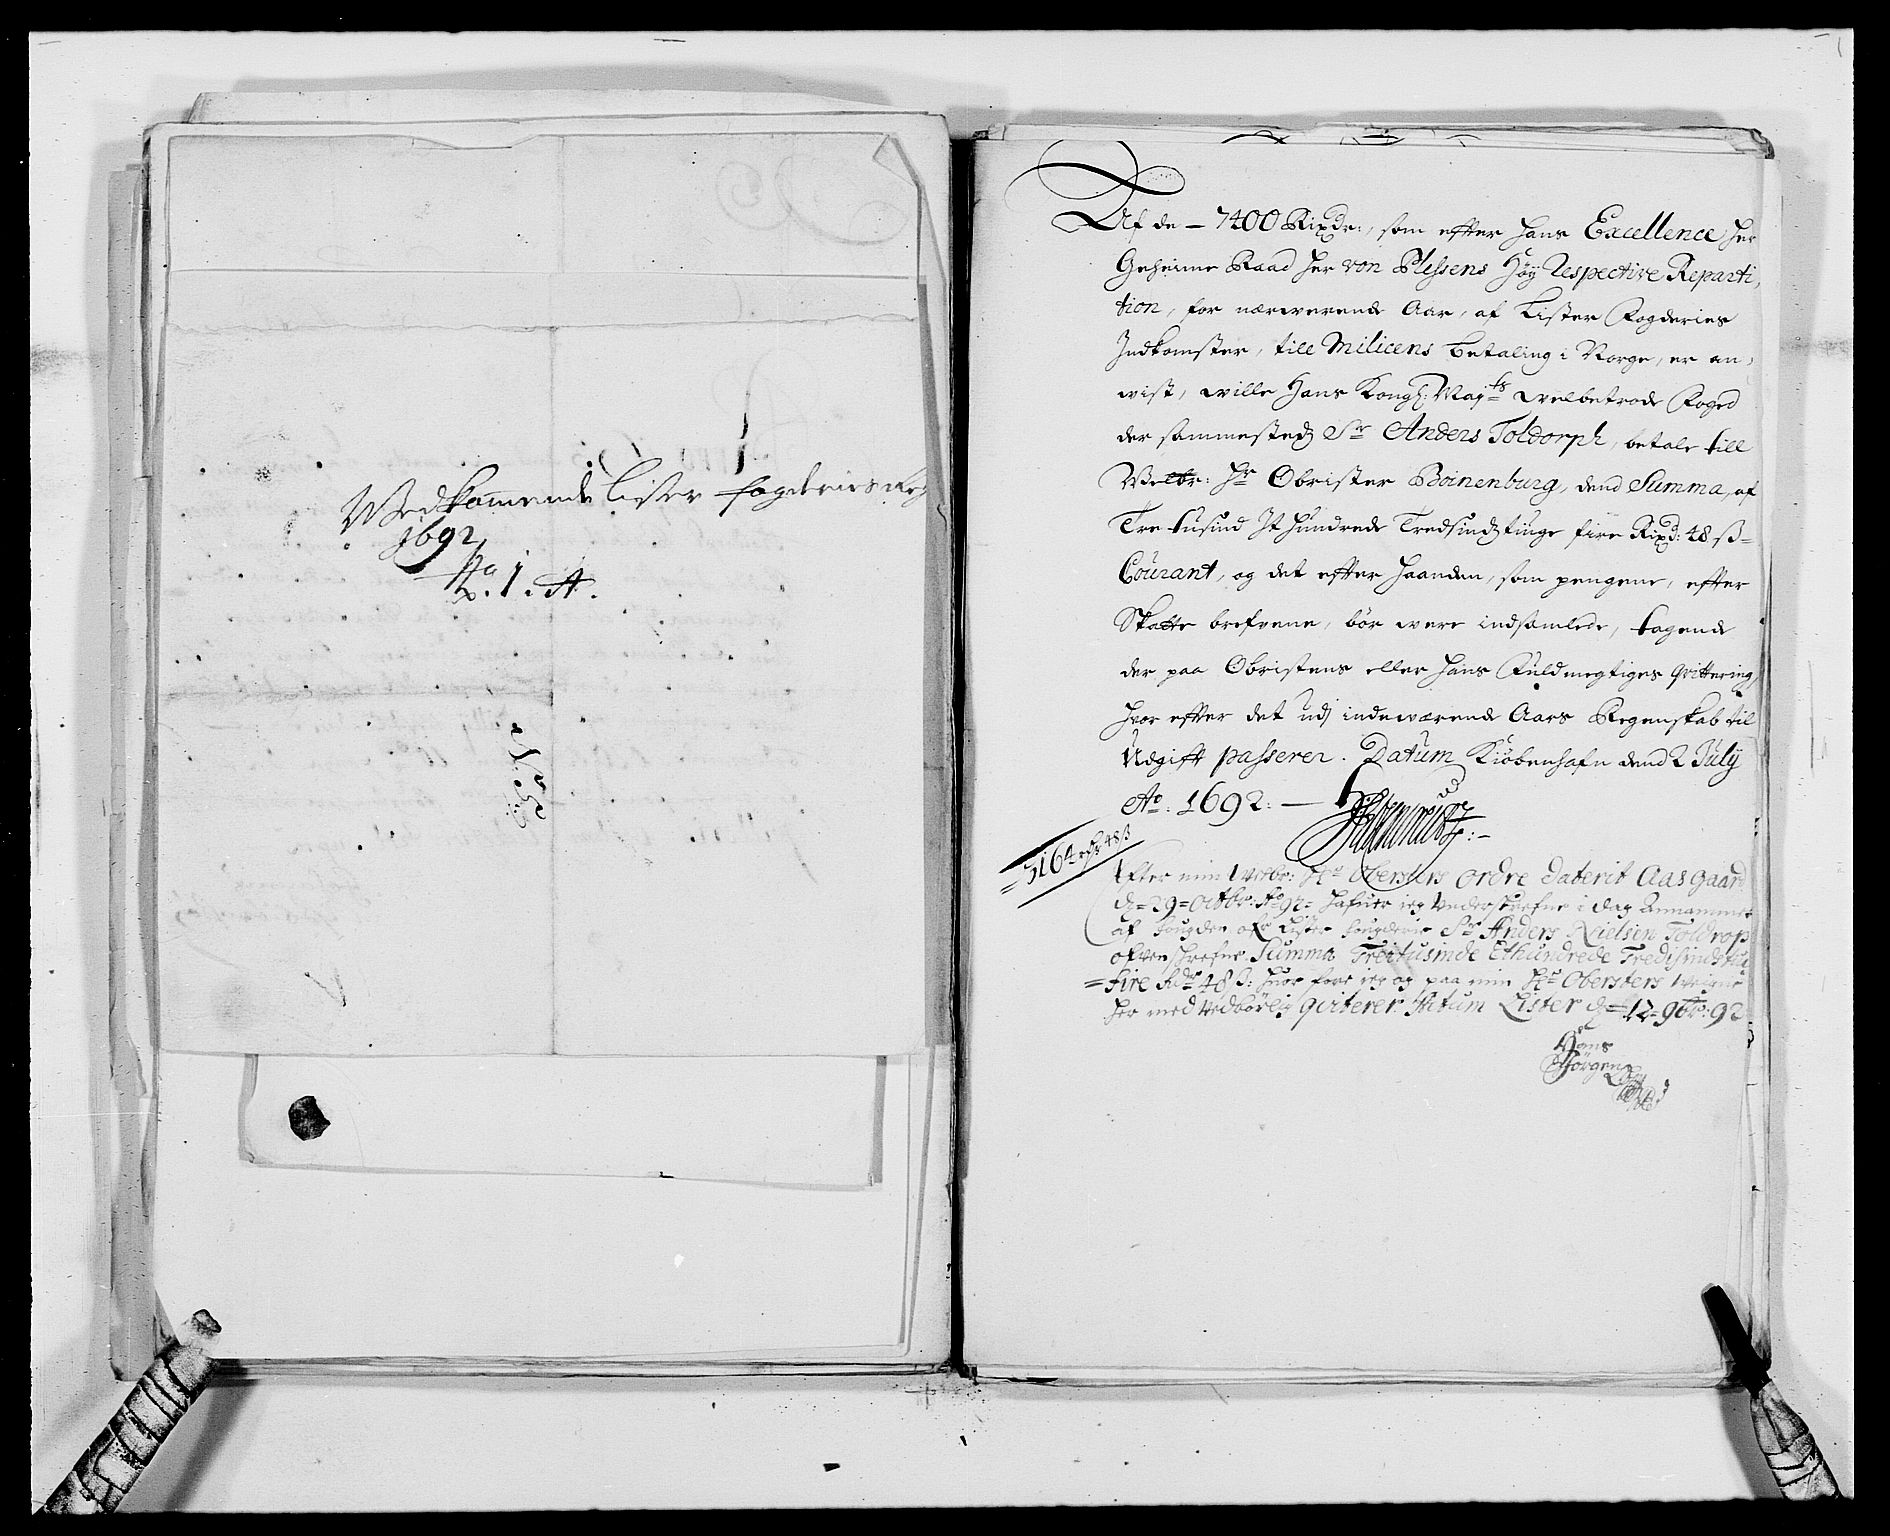 Wedkommende Lister fogderies Reg
1692
No. 1. A.
Af de – 7400 Rixdr:, som effter hans Excellence Her
Geheime Raad Her von Plessens Høy Respective Reparti,
tion, for nærwerende Aar, af Lister Fogderies
Indkomster, till Milicens betaling i Norge, er an,
wist, wille Hans Kongl: Mayts welbetrode Foged
der sammesteds Sr Anders Toldorph, betale till
Welbr: Hr Obrister Boinenburg, dend Summa, af
Tre tusind It hundrede Tredsindstiuge fire Rixd: 48 ß
Courant, og det effter haanden, som pengene, effter
Skatte brefvene, bör were indsamlede, tagende
der paa Obristens eller hans Fuldmegtiges qvittering,
hvor effter det udj indewærende Aars Regenskab til
Udgifft passerer. Datum Kiöbenhafn dend 2 July
Ao. 1692: —
= 3164 rdr 48 ß
Efter min Welbr: Hr Obersters ordre Daterit Aasgaard
d = 29 = Octbr: Ao 92 = hafuer ieg Underskrefne i dag Annammet
af fougden ofr Lister fougderie Sr Anders Nielsen Toldrop
ofven skrefne Summa Treitusinde Ethundrede Tredisindstiu
= fire Rdr 48 ß: huor fore ieg og paa min Hr Obersters Weigne
her med Vedbörlig qviterer. Actum Lister d = 12 = 9br: 92
Hans
Jörgen